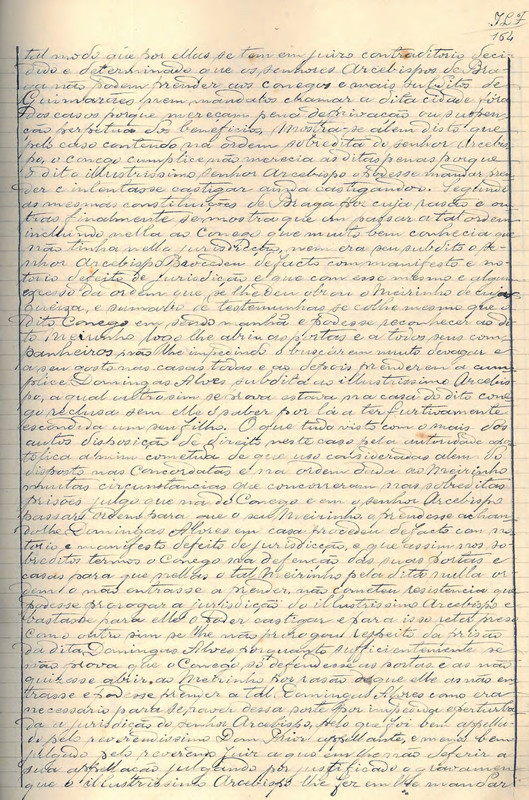 164
tal modo que por ellas se tem em juizo contraditorio deci-
dido e determinado que os senhores Arcebispos de Bra-
ga não podem prender aos conegos e mais subditos de
Guimarães nem mandalos chamar a dita cidade fora
dos casos porque mereçam pena de privação ou suspen-
ção perpetua dos beneficios, Mostra-se alem disto que
pelo caso contendo na ordem sobredita do senhor Arcebis-
po, o conego cumplice não merecia as ditas penas porque
o dito illustrissimo senhor Arcebispo o podesse mandar pren-
der e intentasse castigar ainda castigandoo. Segundo
as mesmas constituições de Braga por cuja rasão e ou-
tras finalmente se mostra que em passar a tal ordem
incluindo nella ao Conego que muito bem conhecia que
não tinha nelle jurisdição, nem era seu subdito o se-
nhor Arcebispo Procedeu de facto com manifesto e no-
torio defeito de jurisdicção e que com esse mesmo e algum
excesso da ordem que se lhe deu obrou o Meirinho de cuja
queixa, e sumario de testemunhas se colhe mesmo que o
dito Conego em sendo manhã e podesse reconhecer ao di-
to Meirinho logo lhe abriu as portas e a todos seus com-
panheiros não lhe impedindo o buscarem muito devagar e
a seu gosto nas casas todas e ao depois prenderem a cum-
plice Domingas Alves subdita do illustrissimo Arcebis-
po, a qual outrosim se prova estava na casa do dito cone-
go reclusa sem elle o saber por lá a ter furtivamente
escondida um seu filho. O que tudo visto com o mais dos
autos disposição de direito neste caso pela autoridade apos-
tolica a mim cometida de que uso consideradas alem do
disposto nas Concordatas e na ordem dada ao Meirinho
muitas circunstancias que concorreram nas sobreditas
prisões julgo que na do Conego e em o senhor Arcebispo
passar ordens para que o seu Meirinho o prendesse achan-
dolhe Domingas Alvres em casa procedeu de facto com no-
torio e manifesto defeito de jurisdicção, e que assim nos so-
breditos termos o Conego na defenção das suas portas e
casas para que nellas o tal Meirinho pela dita nulla or-
dem o não entrasse a prender, não cometeu resistencia que
podesse prorogar a jurisdicção do illustrissimo Arcebispo e
bastasse para elle o poder castigar e para isso reter preso
como outro sim se lhe não prorogou respeito da prisão
da dita Domingas Alves porquanto sufficientemente se
não prova que o Conego só defendesse as portas e as não
quizesse abrir ao Meirinho por rasão de que elle as não en-
trasse e podesse prender a tal Domingas Alvres como era
necessario para se haver dessa sorte por impedida e perturba-
da a jurisdicção do senhor Arcebispo, pelo que foi bem appella-
do pelo reverendissimo Dom Prior appellante, e menos bem
julgado pelo reverendo Juiz a quo em lhe não deferir a
sua appellação julgando por justificado o gravamen
que o illustrissimo Arcebispo lhe fez em lhe mandar